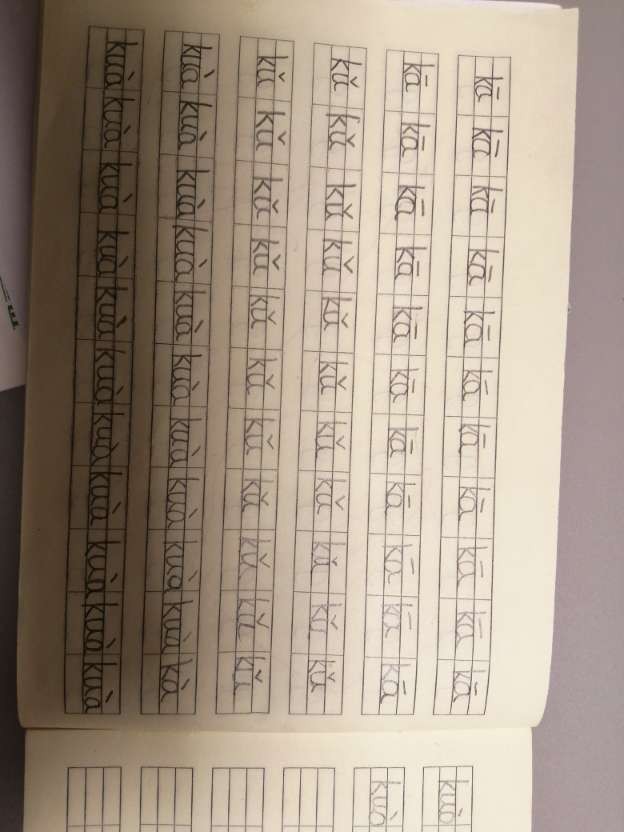 kā kā kā kā kā kā kā kā kā kā kā
kā kā kā kā kā kā kā kā kā kā kā
kǔ kǔ kǔ kǔ kǔ kǔ kǔ kǔ kǔ kǔ kǔ
kǔ kǔ kǔ kǔ kǔ kǔ kǔ kǔ kǔ kǔ kǔ
kuà kuà kuà kuà kuà kuà kuà kuà kuà kuà kà
kuà kuà kuà kuà kuà kuà kuà kuà kuà kuà kuà
kuò
kuò